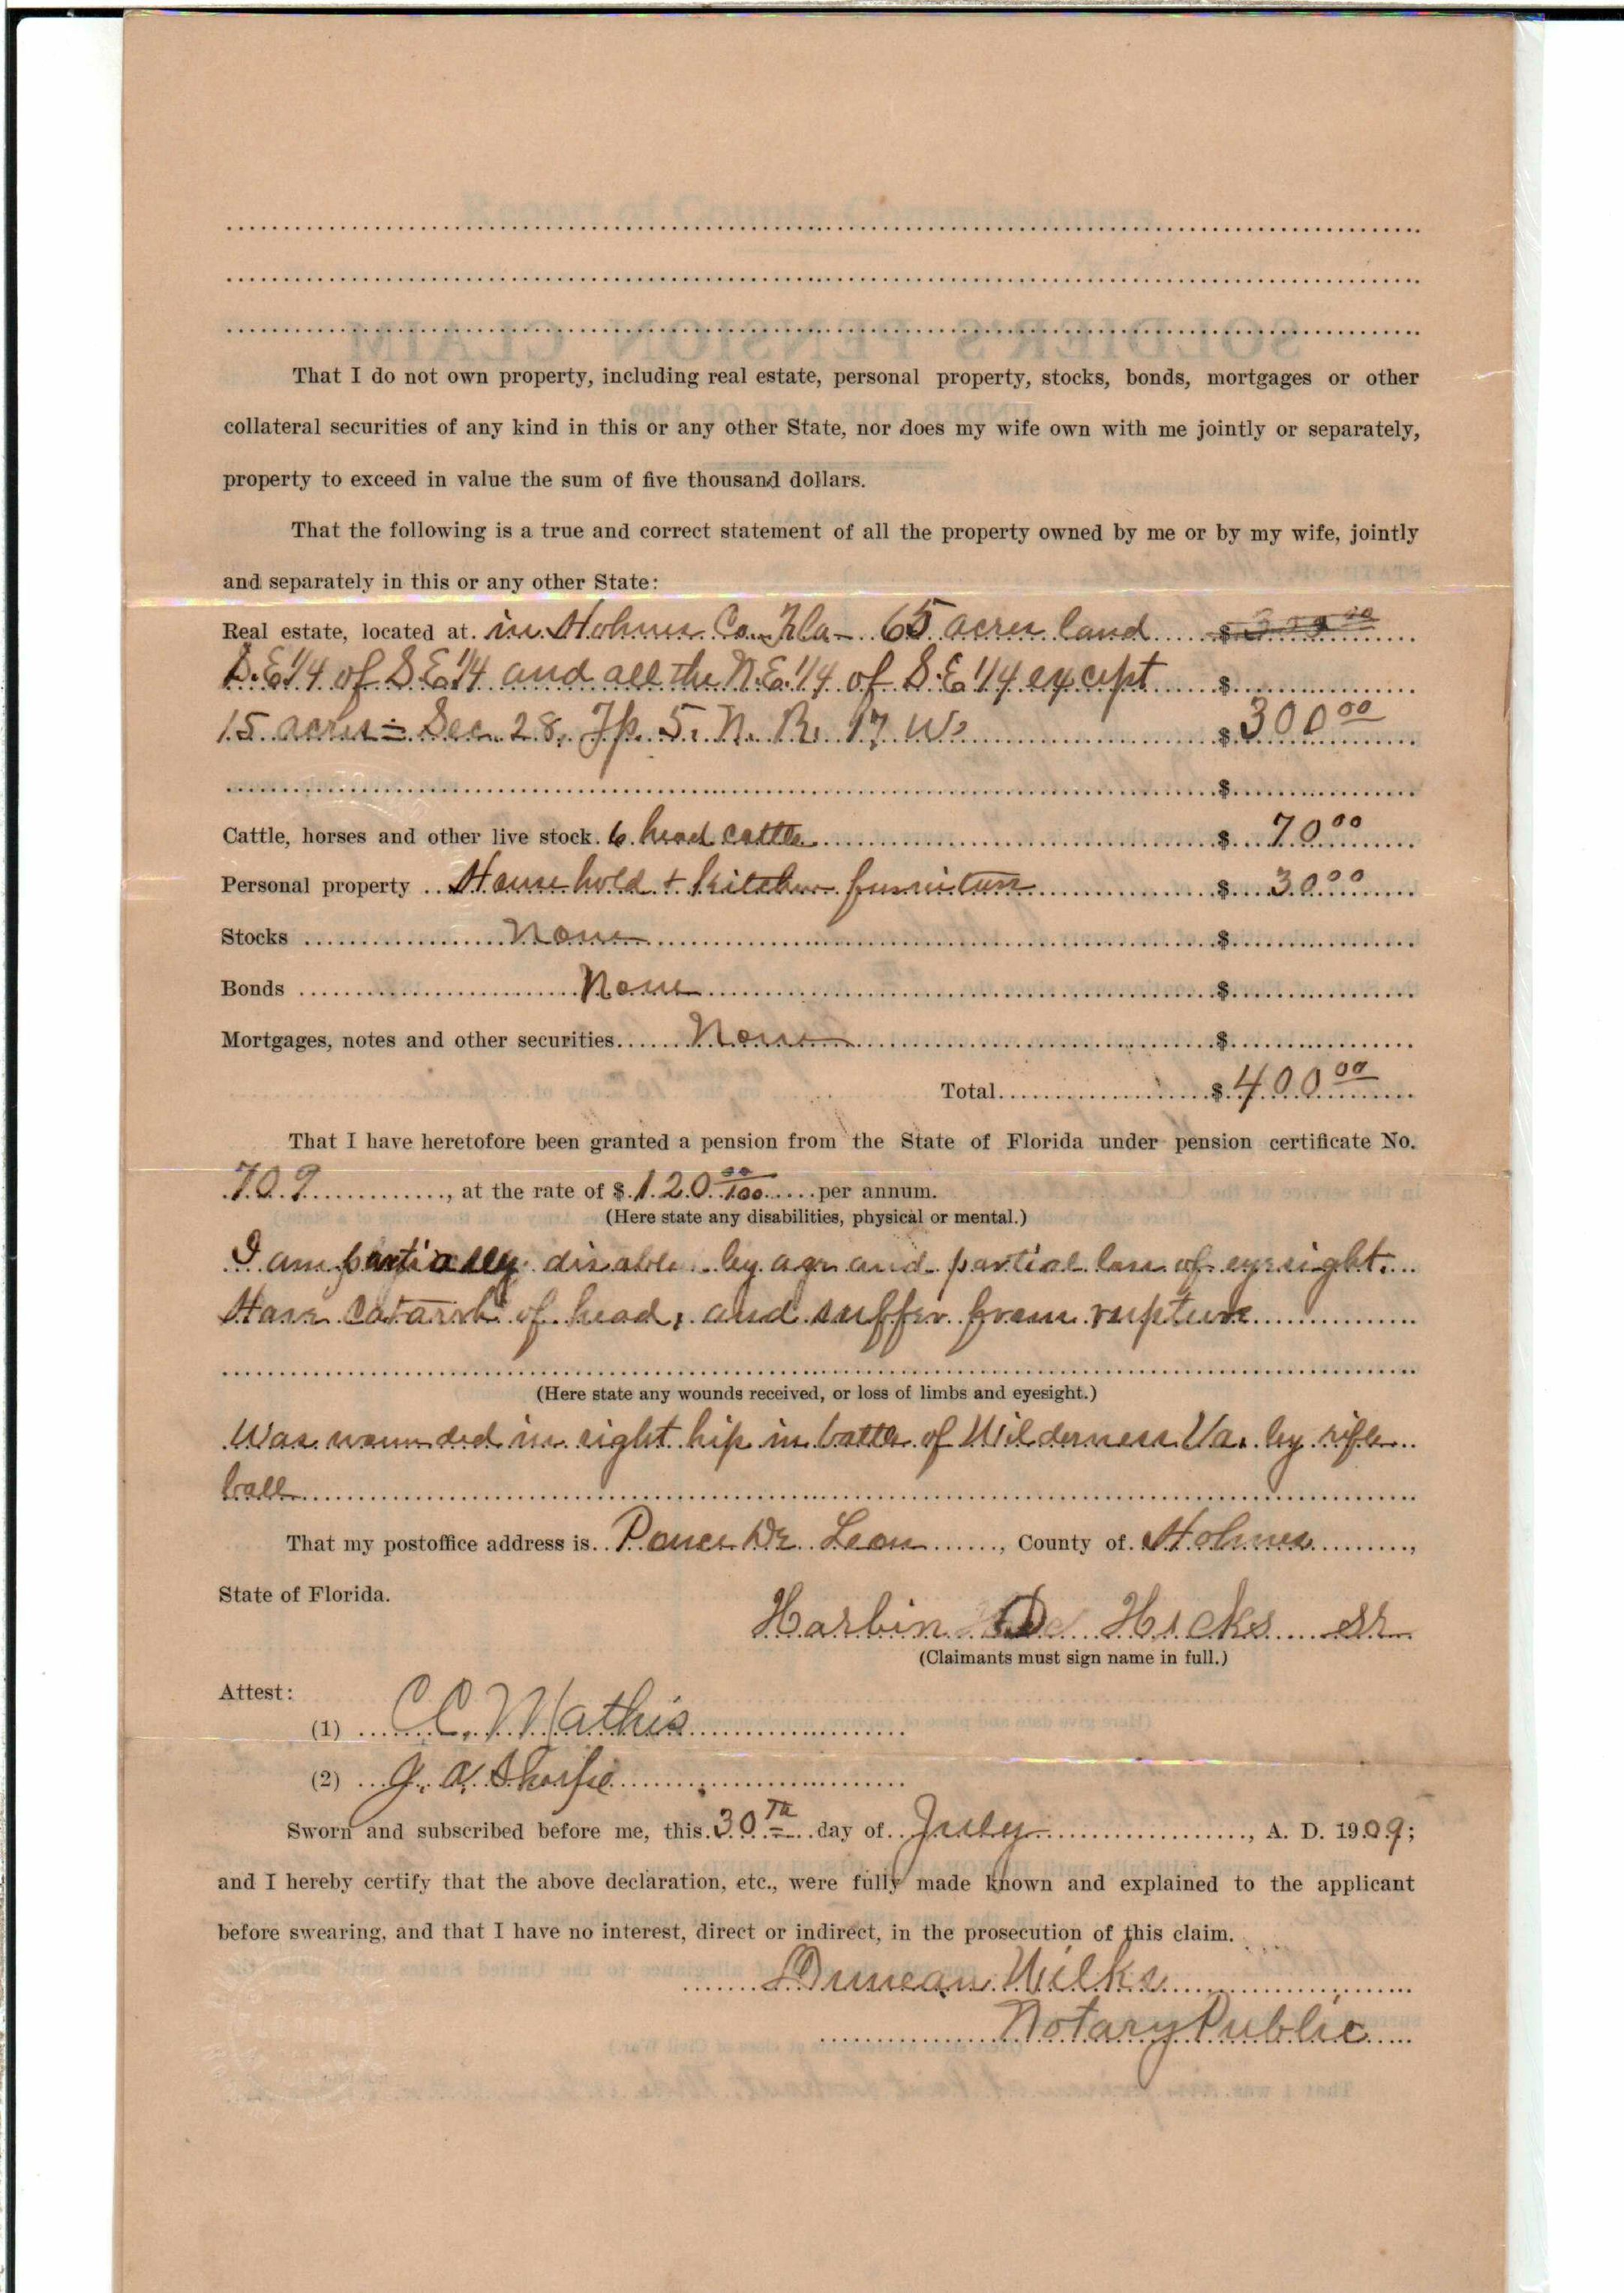 That I do not own property, including real estate, personal property, stocks, bonds, mortgages or other
collateral securities of any kind in this or any other State, nor does my wife own with me jointly or separately,
property to exceed in value the sum of five thousand dollars.
That the following is a true and correct statement of all the property owned by me or by my wife, jointly
and separately in this or any other State:
Real estate, located at in Holmes Co. Fla - 65 acres land $ 300 00
S.E 1/4 of S E 1/4 and all the N.E. 1/4 of S.E 1/4 except $
15 acres = Sec. 28, Tp. 5. N. R. 17 W. $ 300 00
$
Cattle, horses and other live stock. 6 head cattle $ 70 00
Personal property Household + Kitchen furniture $ 30 00
Stocks None $
Bonds None $
Mortgages, notes and other securities None $
Total $ 400 00
That I have heretofore been granted a pension from the State of Florida under pension certificate No.
709, at the rate of $ 120 00/100 per annum.
(Here state any disabilities, physical or mental.)
I am partially disable by age and partial loss of eyesight.
Have catarrh of head, and suffer from rupture
(Here state any wounds received, or loss of limbs and eyesight.)
Was wounded in right hip in battle of Wilderness Va. by rifle
ball
That my postoffice address is Ponce De Leon, County of Holmes,
State of Florida.
Harbin D Hicks Sr
(Claimants must sign name in full.)
Attest:
(1) C. C. Mathis
(2) J. A. Sharpe
Sworn and subscribed before me, this 30 Th day of July, A. D. 1909;
and I hereby certify that the above declaration, etc., were fully made known and explained to the applicant
before swearing, and that I have no interest, direct or indirect, in the prosecution of this claim.
Duncan Wilks
Notary Public